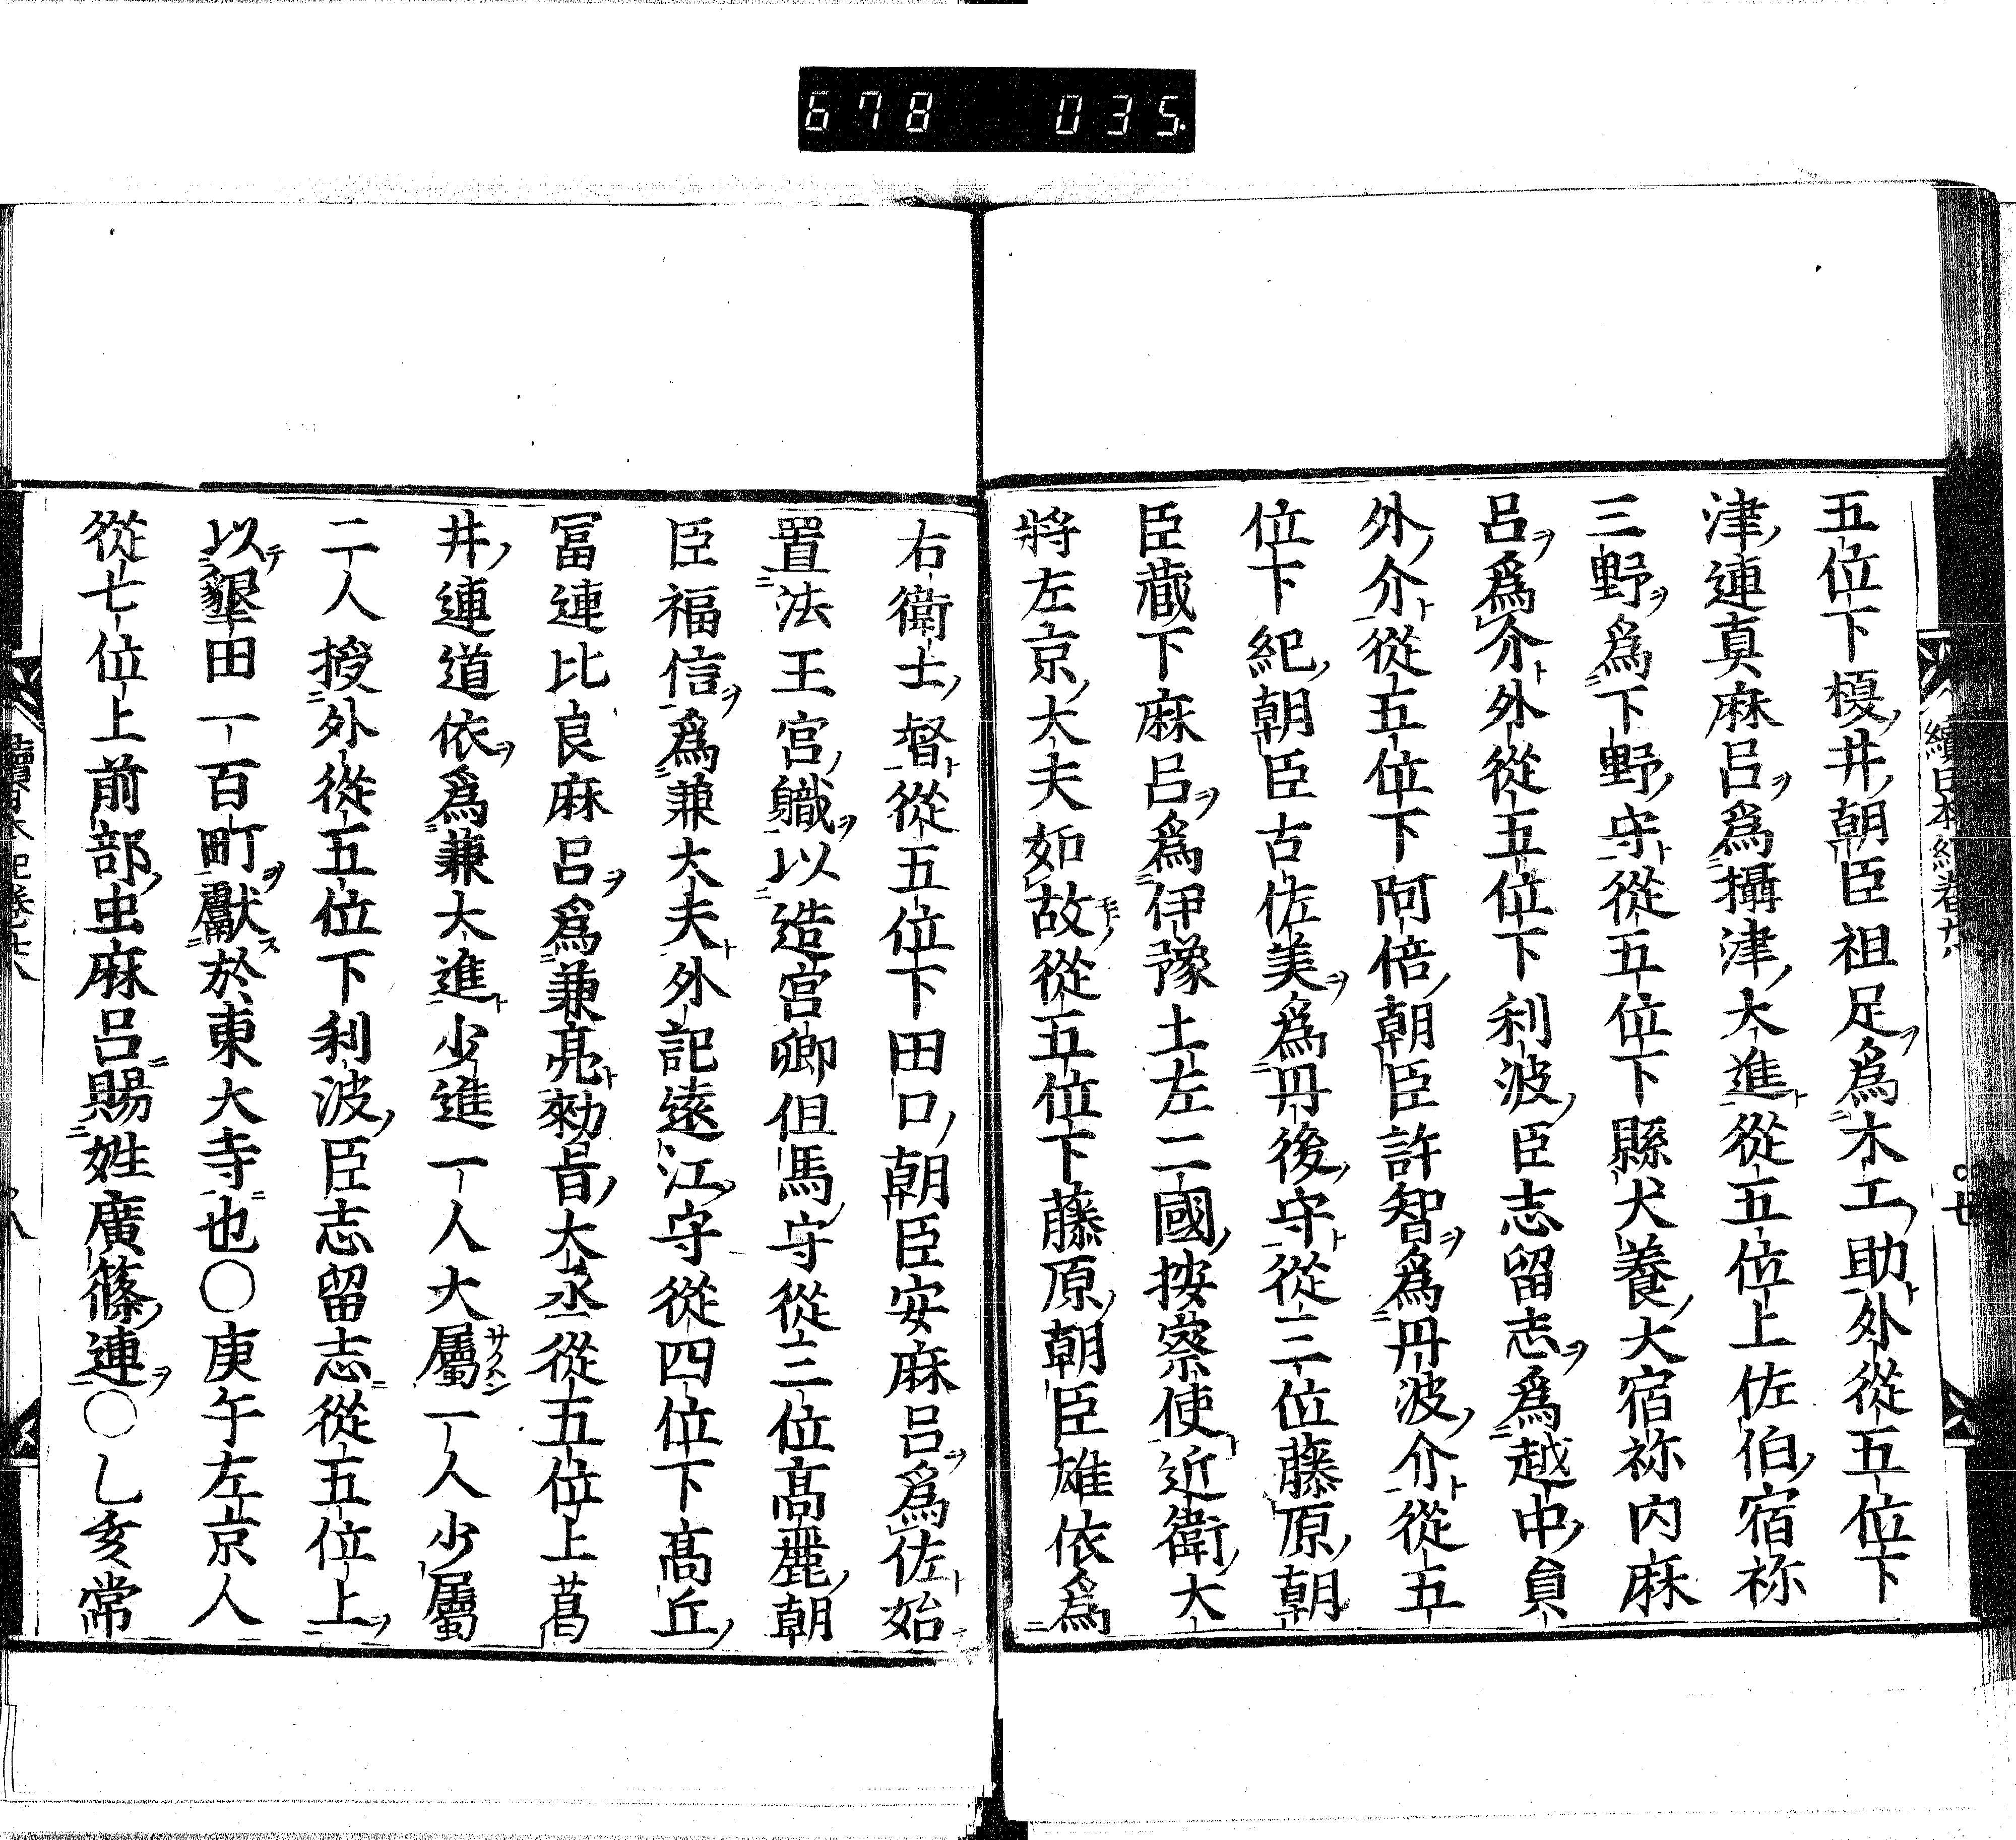 678 035
五位下榎井朝臣祖足爲木工助外從五位下
津連真麻呂爲攝津大進從五位上佐伯宿祢
三野爲下野守從五位下縣犬養大宿祢内麻
呂爲介外從五位下利波臣志留志爲越中員
外介從五位下阿倍朝臣許智爲丹波介從五
位下紀朝臣古佐美爲丹後守從三位藤原朝
臣蔵下麻呂爲伊豫土左二國按察使近衛大
將左京大夫如故從五位下藤原朝臣雄依爲
右衛士督從五位下田口朝臣安麻呂爲佐始
置法王宮職以造宮卿但馬守從三位髙麗朝
臣福信爲兼大夫外記遠江守從四位下髙丘
冨連比良麻呂爲兼亮勅旨大丞從五位上葛
井連道依爲兼大進少進一人大屬一人少屬
二人授外從五位下利波臣志留志從五位上
以墾田一百町獻於東大寺也○庚午左京人
從七位上前部虫麻呂賜姓廣篠連○乙亥常